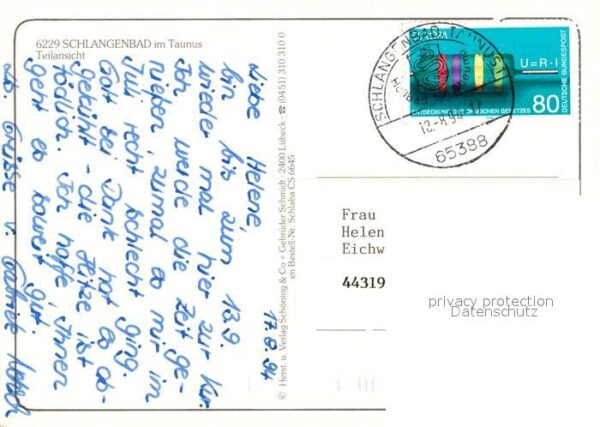 6229 SCHLANGENBAD im Taunus
Teilansicht
17.8.94
Liebe Helene,
bin bis zum 13.9.
wieder mal hier zur Kur.
Ich werde die Zeit ge-
nießen, zumal es mir im
Juli recht schlecht ging.
Gott bei Dank hat es ab-
gekühlt - die Hitze ist
tödlich. Ich hoffe Ihnen
geht es soweit gut
Lb. Grüsse v. Gabriele
© Herst. u. Verlag Schöning & Co + Gebrüder Schmidt · 2400 Lübeck · ☎ (0451) 310 310 0
en Bestell-Nr. Schlaba CS 6645
SCHLANGENBAD, TAUNUS
65388
U=R·I
ENTDECKUNG DES OHMSCHEN GESETZES 80
DEUTSCHE BUNDESPOST
Frau
Helen
Eichw
44319
privacy protection
Datenschutz